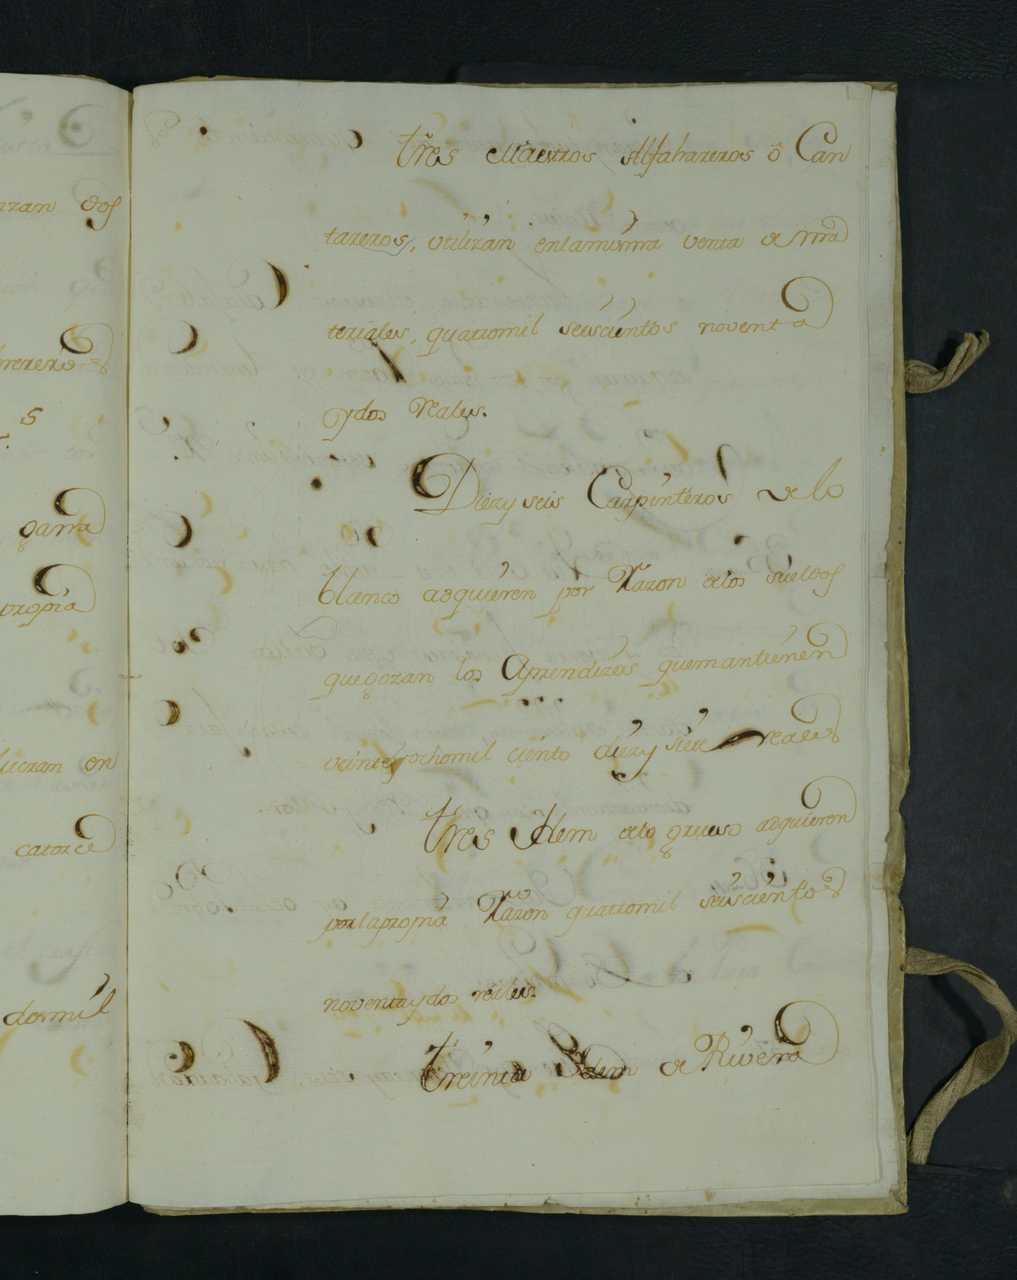 rzan dos
s
garra
propia
liczan en
catorce
dosmil
tres Maestros Alfahareros ô Can
tareros, utilizan enlamisma venta de Ma
teriales, quatromil seiscientos noventa
ydos reales.
Diezy seis Carpinteros de lo
blanco adquieren por Razon delos sueldos
quegozan los Aprendizes quemantienen
veinteyochomil ciento diezy siete reales
tres Idem delo grueso adquieren
porlapropria Razon quatromil seiscientos
noventaydos reales.
treinta Idem de Rivera